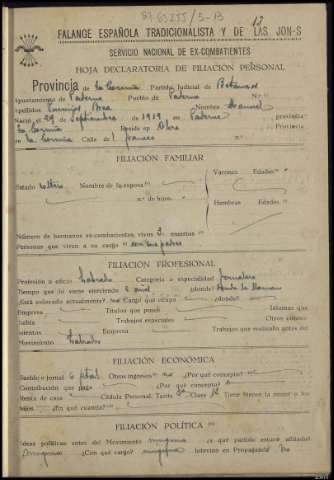 FALANGE ESPAÑOLA TRADICIONALISTA Y DE LAS JON-S
SERVICIO NACIONAL DE EX-COMBATIENTES
HOJA DECLARATORIA DE FILIACIÓN PERSONAL
Provincia de La Coruña Partido Judicial de Betanzos
Ayuntamiento de Paderne Pueblo de Paderne N.º
Apellidos Nombre Manuel
Nació el 29 Septiembre de 1919 en Paderne provincia
La Coruña Reside en Provincia
La Coruña Calle de N.º
FILIACIÓN FAMILIAR
Varones Edades
Estado soltero Nombre de la esposa
n.º de hijos
Hembras Edades
Número de hermanos ex-combatientes vivos 2 muertos
Personas que viven a su cargo
FILIACIÓN PROFESIONAL
Profesión u oficio Labrador Categoría o especialidad Jornalero
Tiempo que lo viene ejerciendo ¿donde?
¿Está colocado actualmente? no Cargo que ocupa ¿donde?
Empresa Títulos que posee Idiomas que
habla Trabajos eventuales Otros conoci-
mientos Empresa Trabajos realizados antes del
Movimiento Labrador
FILIACIÓN ECONÓMICA
Sueldo o jornal 6 ptas Otros ingresos no ¿Por qué concepto?
Contribución que paga ¿Por qué concepto?
Renta de casa Cédula Personal Tarifa Clase Tiene bienes la mujer o los
hijos ¿En qué cuantía?
FILIACIÓN POLÍTICA
Ideas políticas antes del Movimiento ninguna ¿a qué partido estuvo afiliado?
ninguno ¿Con qué cargo? ninguno Intervino en Propaganda No